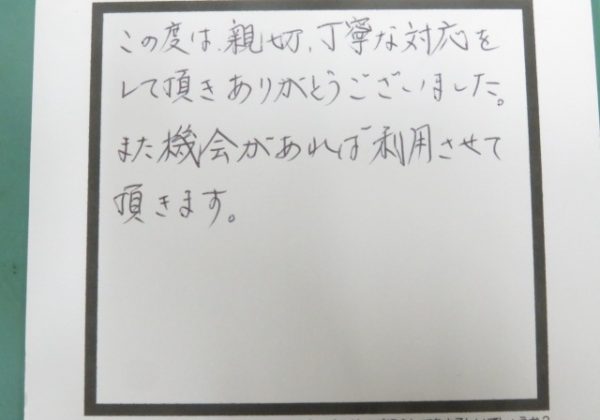 この度は、親切、丁寧な対応を
して頂きありがとうございました。
また機会があれば利用させて
頂きます。